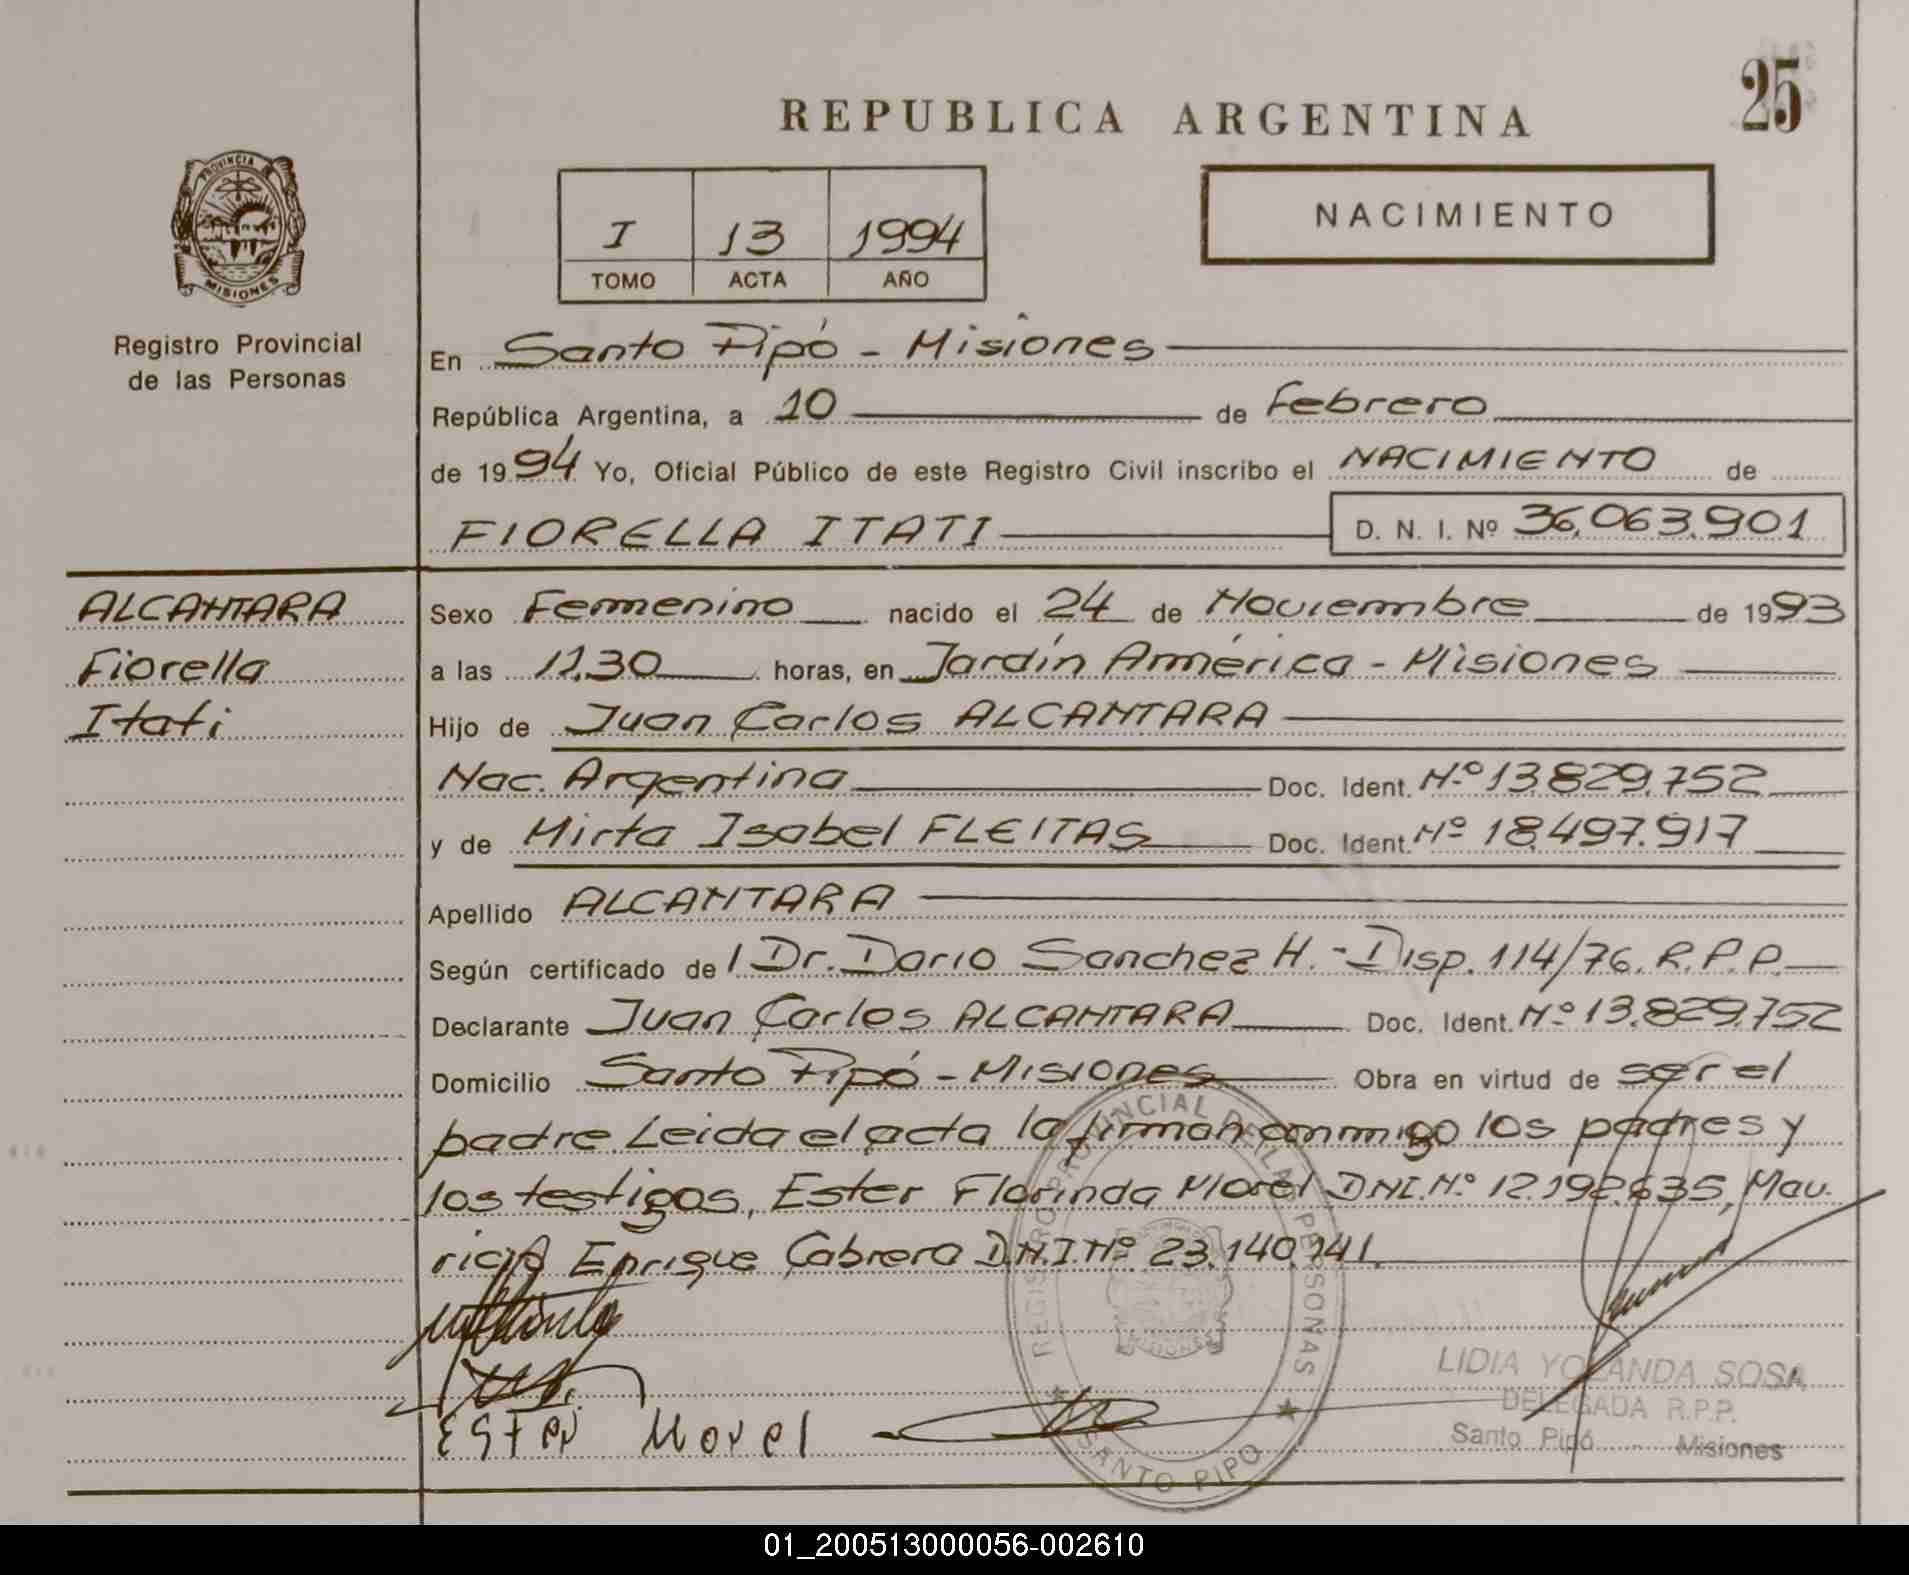 25
REPUBLICA ARGENTINA
NACIMIENTO
I 13 1994
TOMO ACTA AÑO
PROVINCIA DE
MISIONES
Registro Provincial
de las Personas
En Santo Pipó - Misiones
República Argentina, a 10 de febrero
de 1994 Yo, Oficial Público de este Registro Civil inscribo el NACIMIENTO de
FIORELLA ITATI D. N. I. Nº 36.063.901
ALCANTARA
Fiorella
Itati
Sexo Femenino nacido el 24 de Noviembre de 1993
a las 11,30 horas, en Jardín América - Misiones
Hijo de Juan Carlos ALCANTARA
Nac. Argentina Doc. Ident. Nº 13.829.752
y de Mirta Isabel FLEITAS Doc. Ident. Nº 18.497.917
Apellido ALCANTARA
Según certificado de l Dr. Dario Sanchez H. - Disp. 114/76. R.P.P.
Declarante Juan Carlos ALCANTARA Doc. Ident. Nº 13.829.752
Domicilio Santo Pipó - Misiones Obra en virtud de ser el
padre. Leida el acta la firman conmigo los padres y
los testigos, Ester Florinda Morel DNI. Nº 12.192.635, Mau.
ricio Enrique Cabrera D.N.I. Nº 23.140.141.
Ester Morel
REGISTRO PROVINCIAL DE LAS PERSONAS
MISIONES
SANTO PIPO
LIDIA YOLANDA SOSA
DELEGADA R.P.P.
Santo Pipó - Misiones
01_200513000056-002610